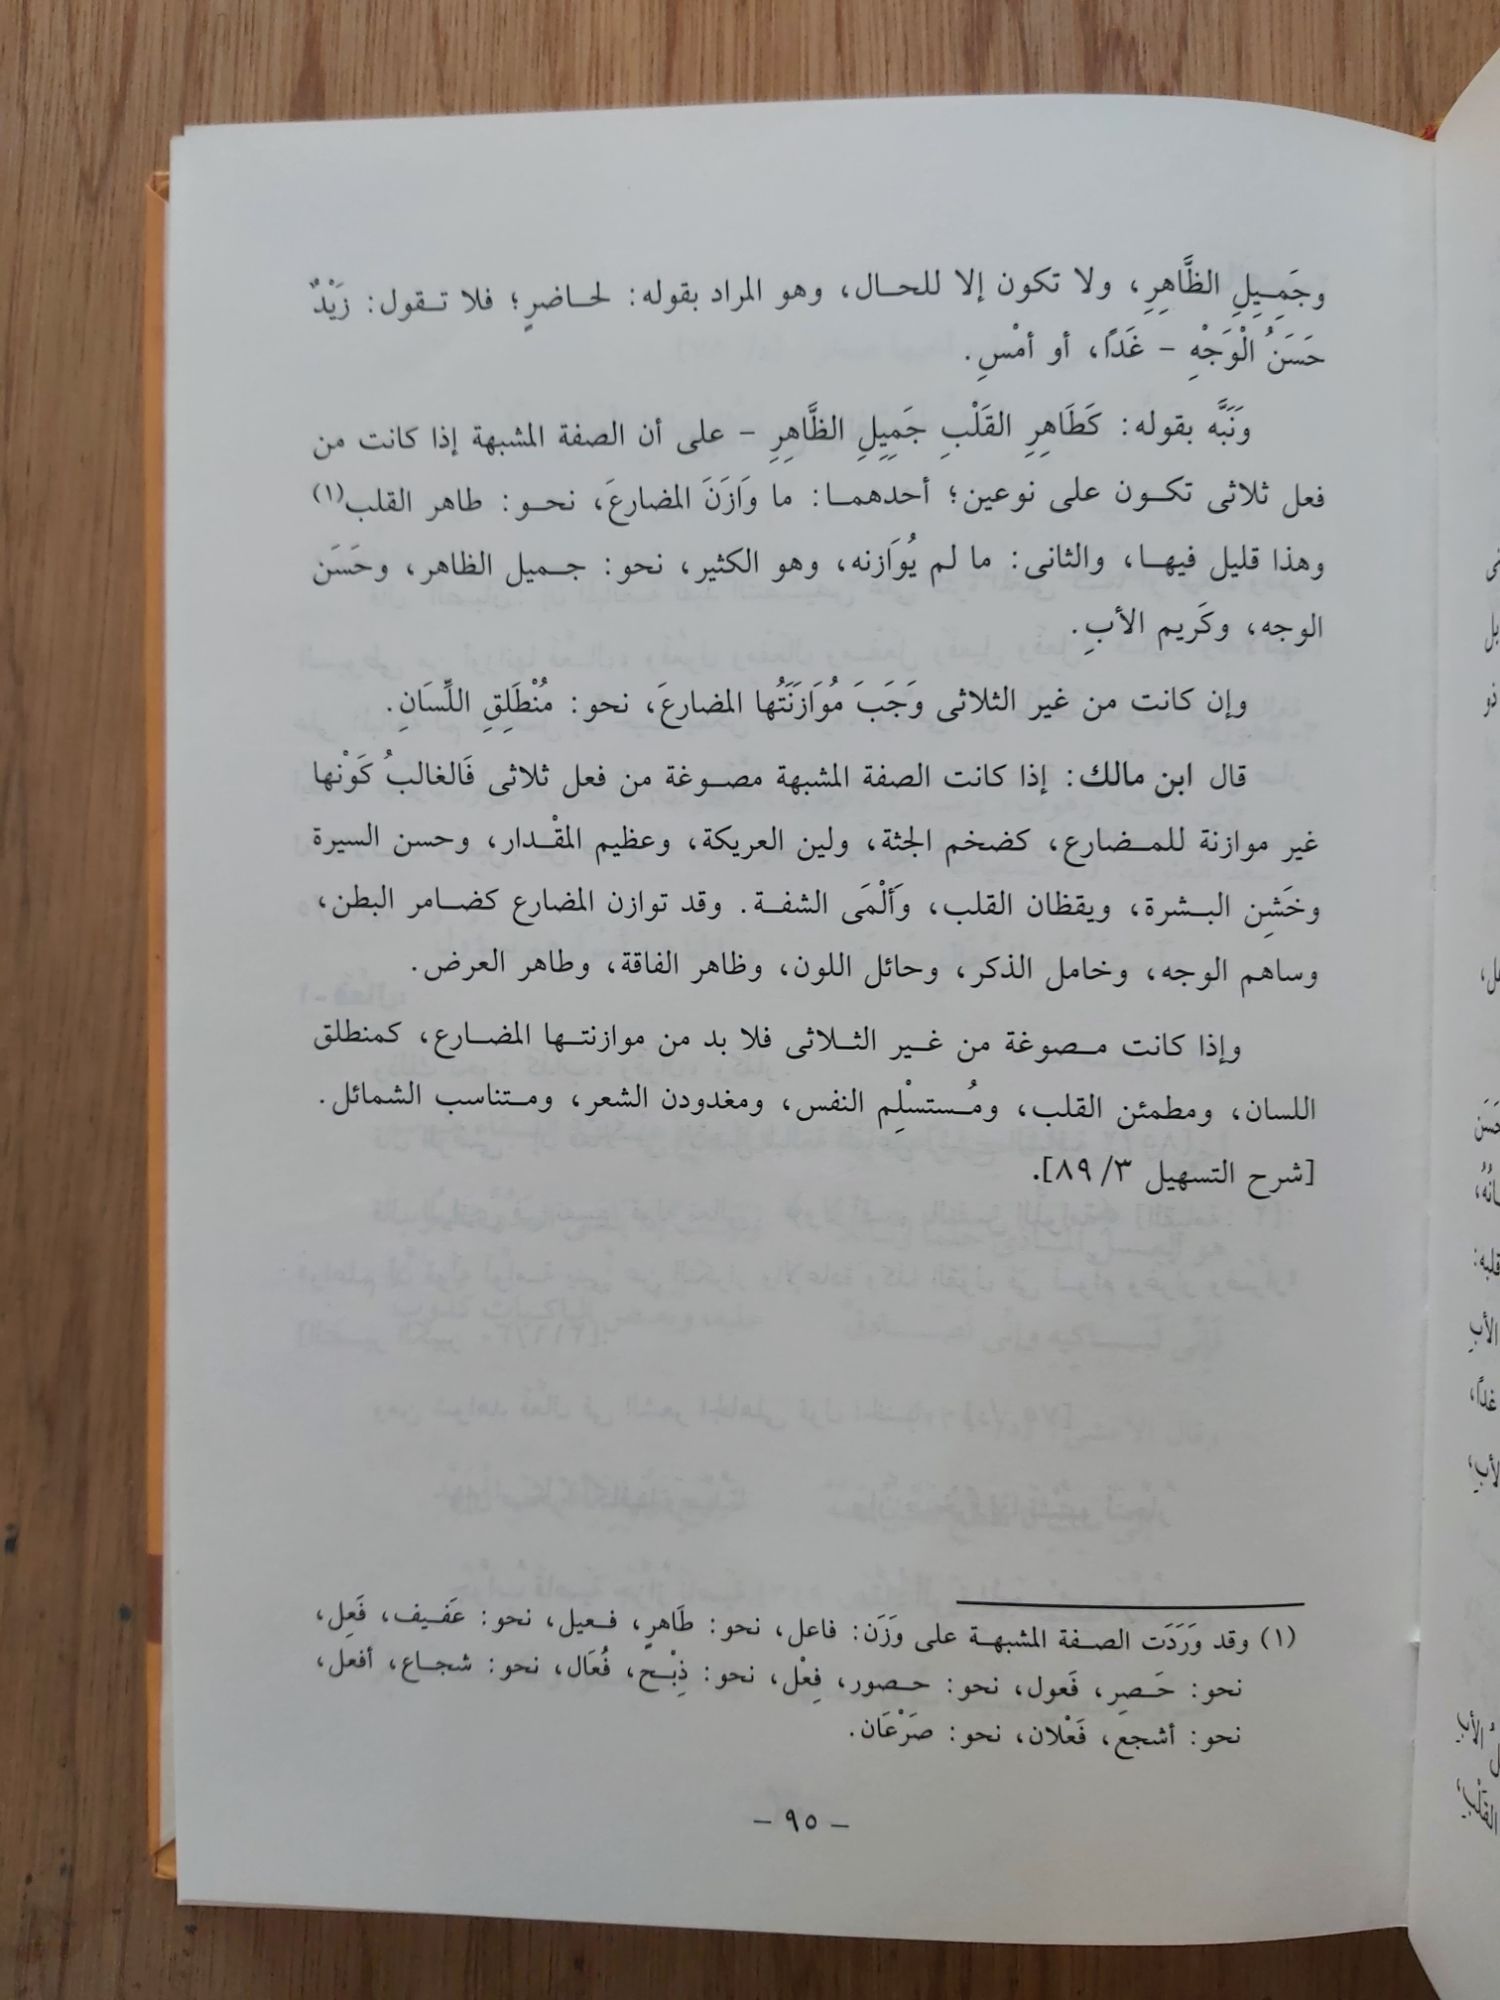 وجَمِـيِلِ الظَّاهِرِ، ولا تكون إلا للحـال، وهو المراد بقوله: لحـاضرٍ؛ فلا تـقول: زَيْدٌ
حَسَنُ الْوَجْهِ – غَدًا، أو أمْسِ.
وَنَبَّه بقوله: كَطَاهِرِ القَلْبِ جَمِيِلِ الظَّاهِرِ – على أن الصفة المشبهة إذا كانت من
فعل ثلاثى تكـون على نوعين؛ أحدهمـا: ما وَازَنَ المضارعَ، نحـو: طاهر القلب(١)
وهذا قليل فيهـا، والثانى: ما لم يُوَازنه، وهو الكثير، نحو: جـميل الظاهر، وحَسَن
الوجه، وكَريم الأبِ.
وإن كانت من غير الثلاثى وَجَبَ مُوَازَنَتُها المضارعَ، نحو: مُنْطَلِقِ اللِّسَانِ.
قال ابن مالك: إذا كانت الصفة المشبهة مصـوغة من فعل ثلاثى فَالغالبُ كَوْنها
غير موازنة للمـضارع، كضخم الجثة، ولين العريكة، وعظيم المقْـدار، وحسن السيرة
وخَشِن البـشرة، ويقظان القلب، وَأَلْمَى الشفـة. وقد توازن المضارع كضـامر البطن،
وساهم الوجه، وخامل الذكر، وحائل اللون، وظاهر الفاقة، وطاهر العرض.
وإذا كانت مـصوغة من غـير الثـلاثى فلا بد من موازنتـها المضـارع، كمنطلق
اللسان، ومطمئن القلب، ومُـستسْلِم النفس، ومغدودن الشعر، ومـتناسب الشمائل.
[شرح التسهيل ٣/ ٨٩].
(١) وقد وَرَدَت الصـفة المشبهـة على وَزَن: فاعل، نحو: طَاهرٍ، فـعيل، نحو: عَفـيف، فَعِل،
نحو: حَـصِر، فَعول، نحو: حـصور، فِعْل، نحو: ذِبْـح، فُعَال، نحو: شجـاع، أفعل،
نحو: أشجع، فَعْلان، نحو: صَرْعَان.
– ٩٥ –